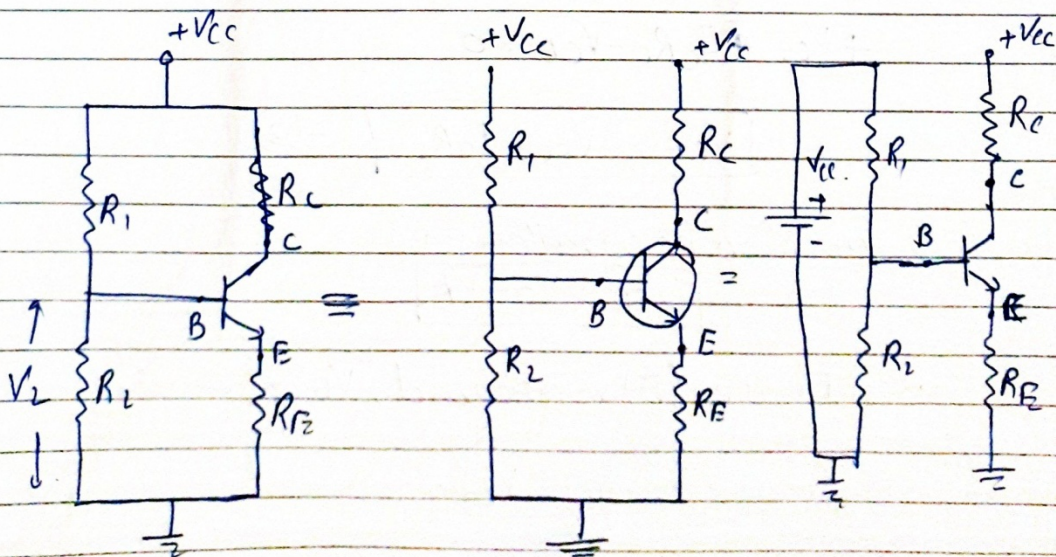 +VCC
R1
RC
C
B
E
V2
R2
RE
≡
+VCC
+VCC
R1
RC
C
B
E
R2
RE
=
+VCC
RC
VCC.
+
-
R1
C
B
E
R2
RE